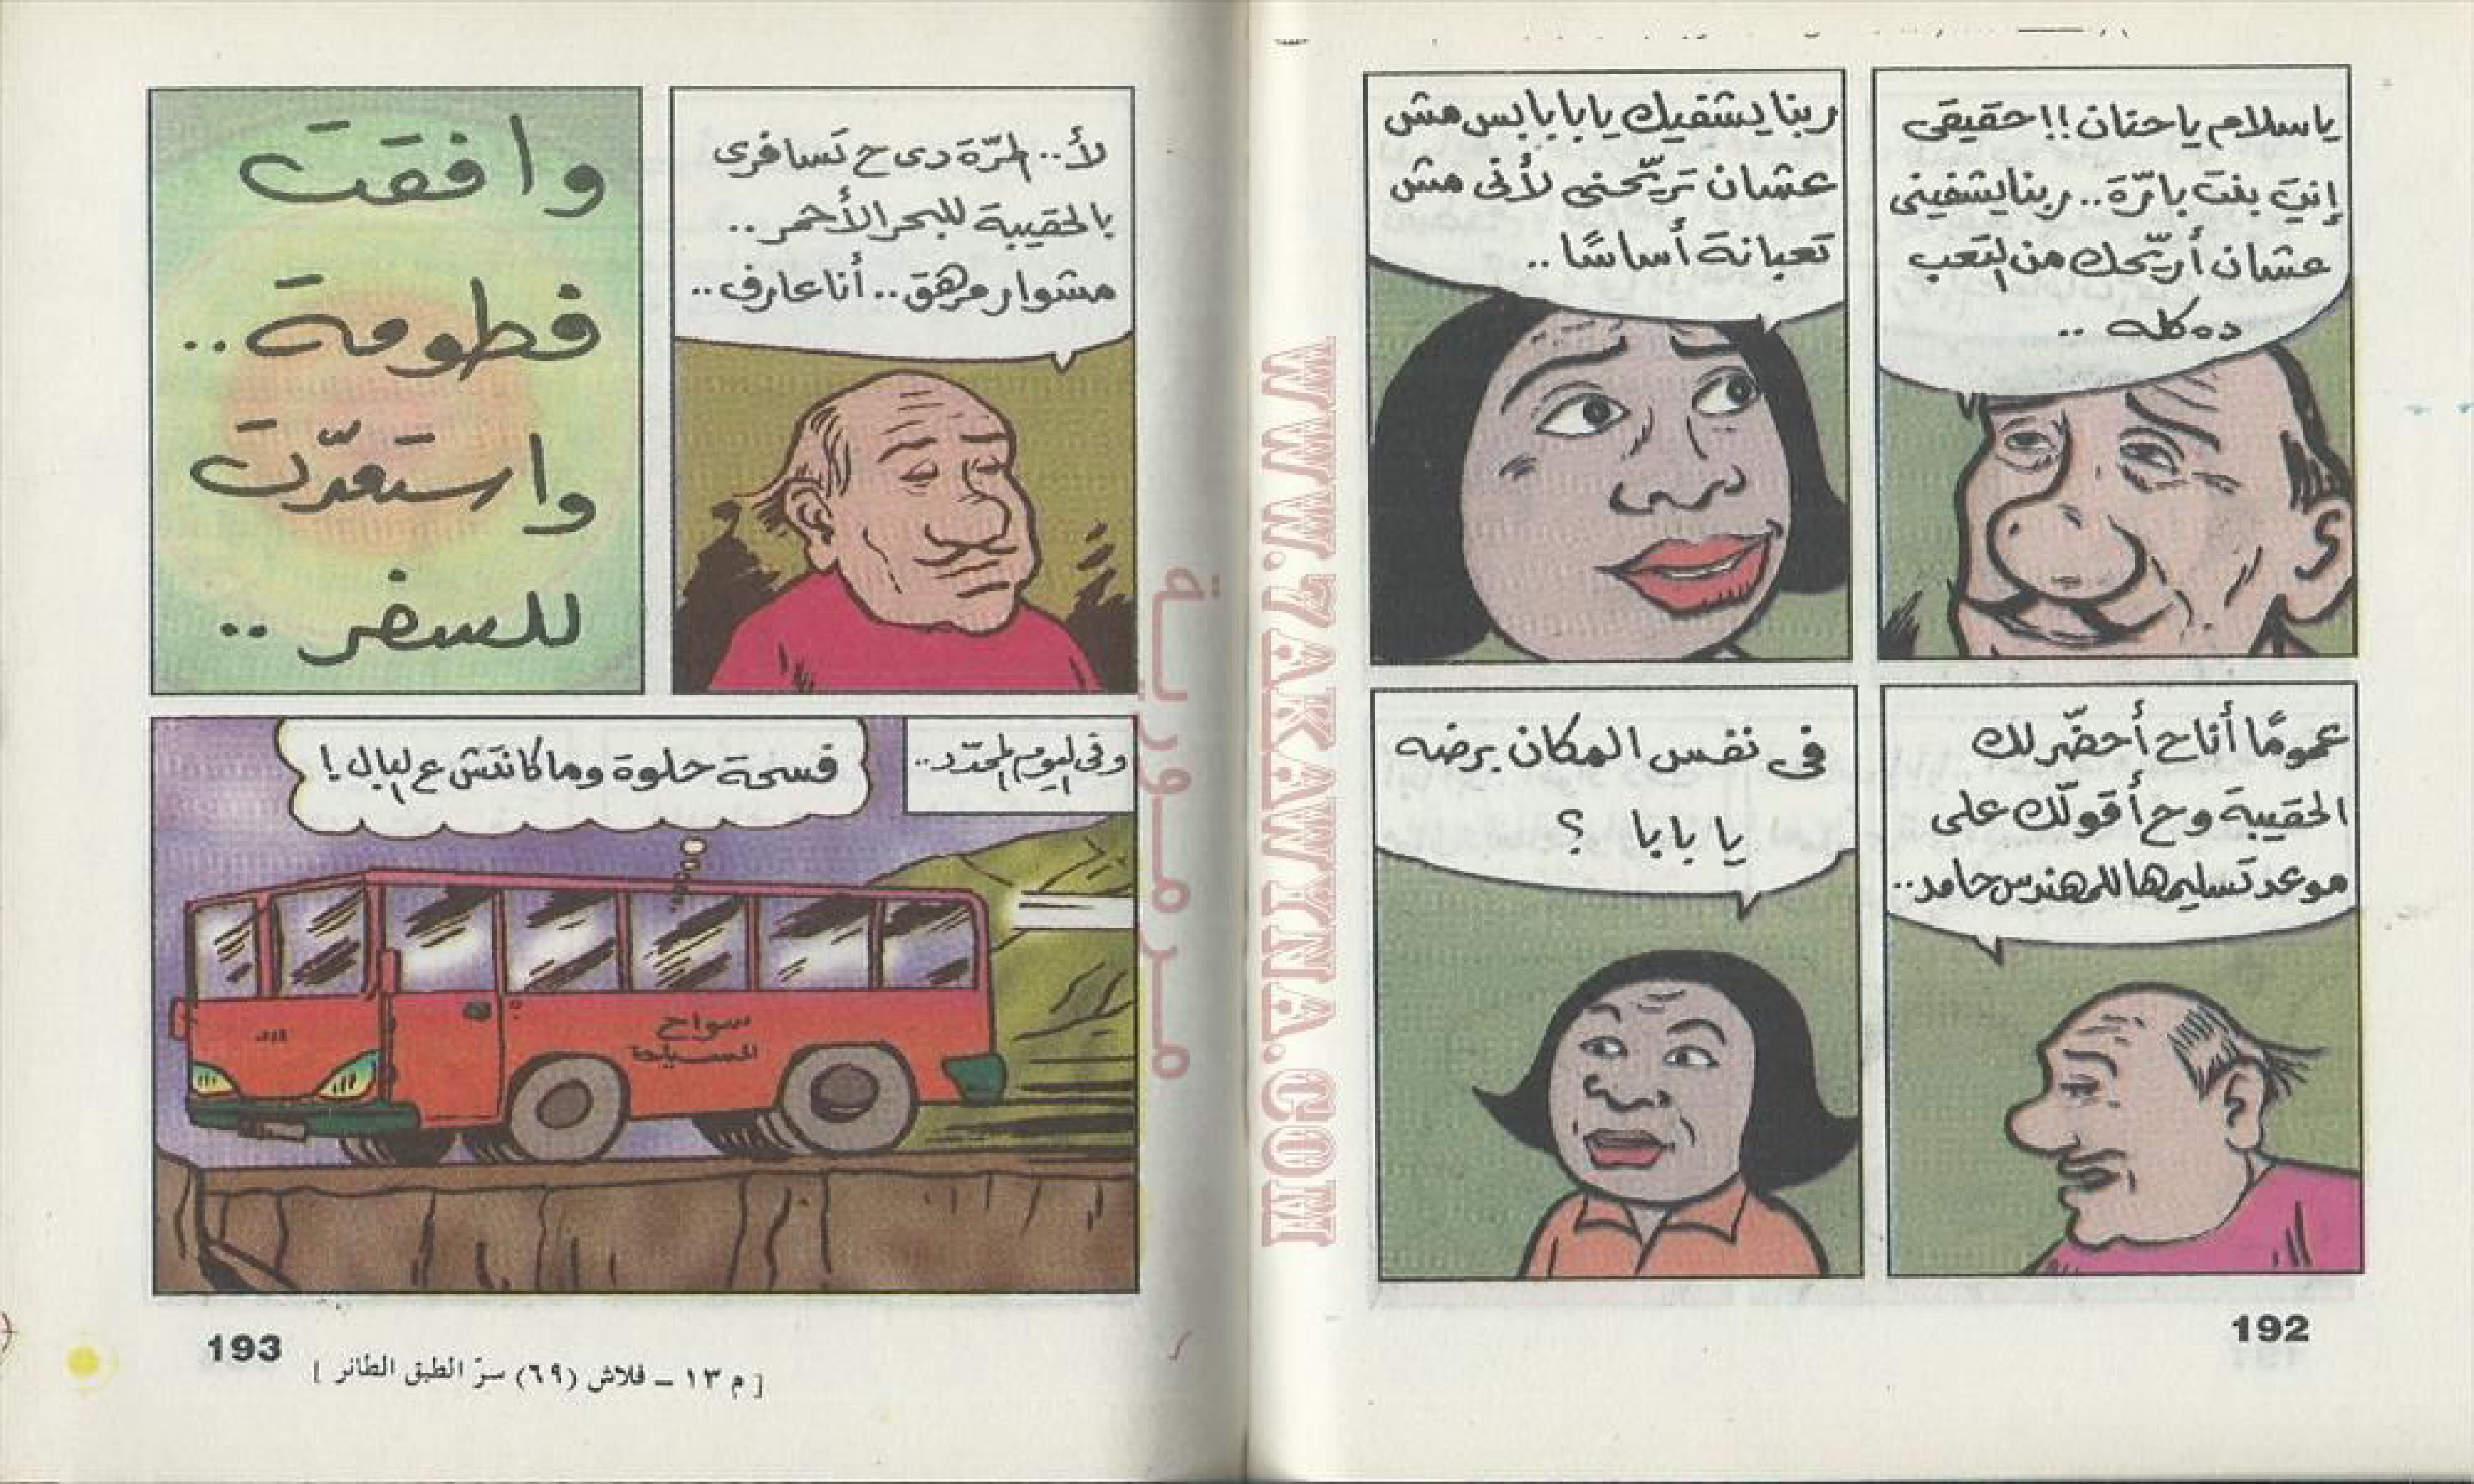 ياسلام ياحنان!! حقيقى
إنتِ بنت بارّة.. ربنا يشفينى
عشان أريّحك من التعب
ده كله ..
ربنا يشفيك يابابا بس مش
عشان تريّحنى لأنى مش
تعبانة أساسًا ..
عمومًا أنا ح أحضّر لك
الحقيبة وح أقولّك على
موعد تسليمها للمهندس حامد..
فى نفس المكان برضه
يا بابا ؟
192
لأ.. المرّة دى ح تسافرى
بالحقيبة للبحر الأحمر..
مشوار مرهق.. أنا عارف..
وافقت
فطومة ..
واستعدّت
للسفر ..
وفى اليوم المحدّد..
فسحة حلوة وما كانتش ع البال !
سواح
للسياحة
193
[ م ١٣ – فلاش (٦٩) سرّ الطبق الطائر ]
WWW.7AKAWINA.COM
مرمورية